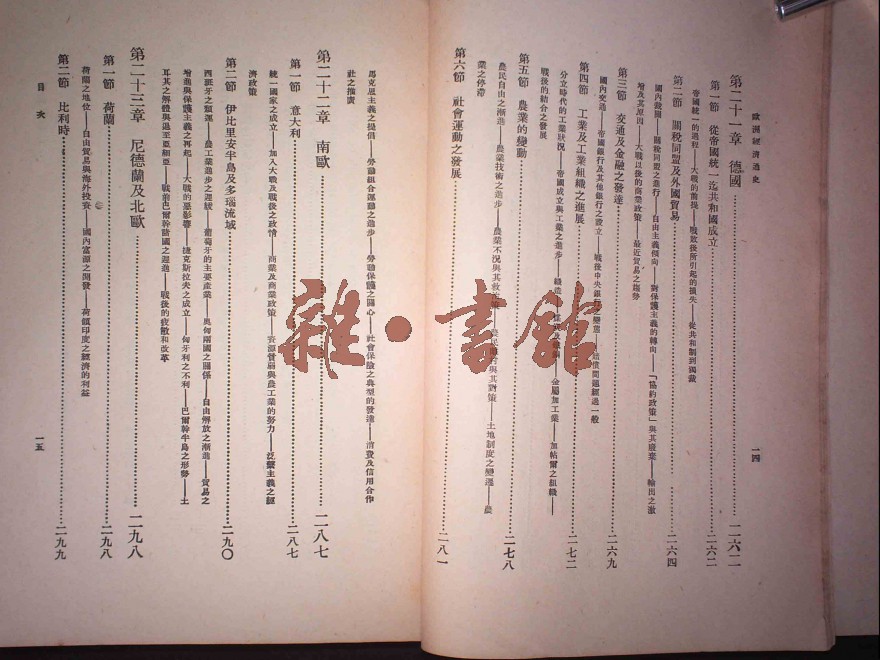 歐洲經濟通史
一四
第二十一章 德國……二六二
第一節 從帝國統一迄共和國成立……二六二
帝國統一的過程——大戰的前提——戰敗後所引起的損失——從共和制到獨裁
第二節 關稅同盟及外國貿易……二六四
國內救國——關稅同盟之進行——自由主義傾向——對保護主義的轉向——「協約政策」與其廢棄——輸出之激
增及其原因——大戰以後的商業政策——最近貿易之趨勢
第三節 交通及金融之發達……二六九
國內交通——帝國銀行及其他銀行之設立——戰後中央銀行之變革——賠償問題經過一般
第四節 工業及工業組織之進展……二七二
分立時代的工業狀況——帝國成立與工業之進步——鐵道——金屬加工業——加帖爾之組織——
戰後的結合之發展
第五節 農業的變動……二七八
農民自由之漸進——農業技術之進步——農業不況與其救治策——農民與其對策——土地制度之變遷——農
業之停滯
第六節 社會運動之發展……二八一
馬克思主義之提倡——勞動組合運動之進步——勞動保護之關心——社會保險之典型的發達——消費及信用合作
社之推廣
第二十二章 南歐……二八七
第一節 意大利……二八七
統一國家之成立——加入大戰及戰後之政情——商業及商業政策——資源貧弱與農工業的努力——泛繫主義之經
濟政策
第二節 伊比里安半島及多瑙流域……二九〇
西班牙之類運——農工業進步之遲緩——葡萄牙的主要產業——奧匈兩國之關係——自由解放之漸進——貿易之
增進與保護主義之再起——大戰的惡影響——捷克斯拉夫之成立——匈牙利之不利——巴爾幹半島之形勢——土
耳其之解體與退至亞細亞——戰前巴爾幹諸國之遲進——戰後的疲敝和改革
第二十三章 尼德蘭及北歐……二九八
第一節 荷蘭……二九八
荷蘭之地位——自由貿易與海外投資——國內富源之開發——荷領印度之經濟的利益
第二節 比利時……二九九
目次
一五
雜·書館